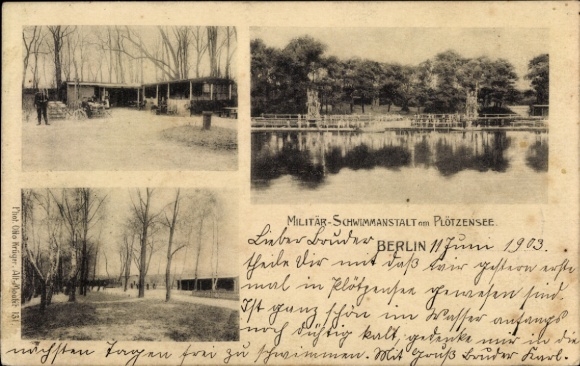 MILITÄR-SCHWIMMANSTALT am PLÖTZENSEE.
BERLIN 11 Juni 1903.
Lieber Bruder
theile Dir mit daß wir gestern erste
mal in Plötzensee gewesen sind.
Ist ganz schön im Wasser anfangs
noch tüchtig kalt, gedenke nur in die
nächsten Tagen frei zu schwimmen. Mit Gruß Bruder Karl.
Phot. Otto Krüger, Alt-Moabit 131.